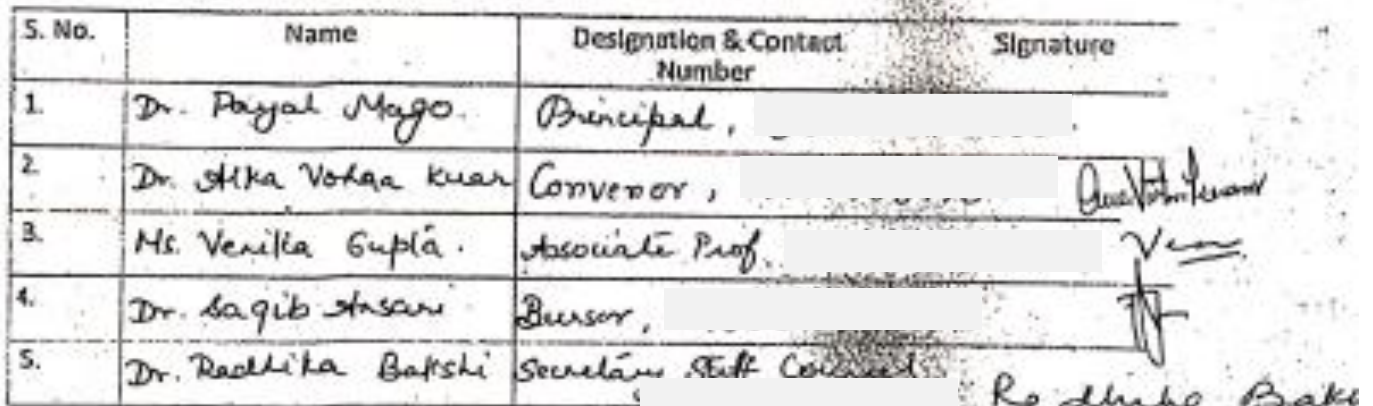 S. No. Name Designation & Contact Signature
Number
1. Dr. Payal Mago. Principal,
2. Dr. Alka Vohra Kuar Convenor,
3. Ms. Venika Gupta. Associate Prof.
4. Dr. Saqib Ansari Bursor,
5. Dr. Radhika Bakshi Secretary Staff Council